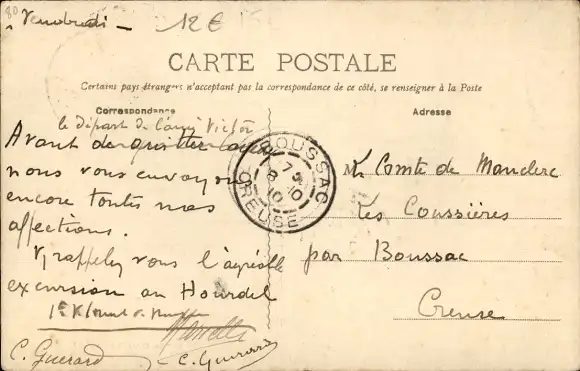 Vendredi 12€
CARTE POSTALE
Certains pays étrangers n'acceptant pas la correspondance de ce côté, se renseigner à la Poste
Correspondance
Adresse
le départ de l'ami Victor
Avant de quitter
nous vous envoyons
encore toutes nos
affections.
Rappelez vous l'agréable
excursion au Hourdel
C. Guerard - C. Guerard
BOUSSAC
CREUSE
Mr Comte de Manclerc
Les Coussières
par Boussac
Creuse